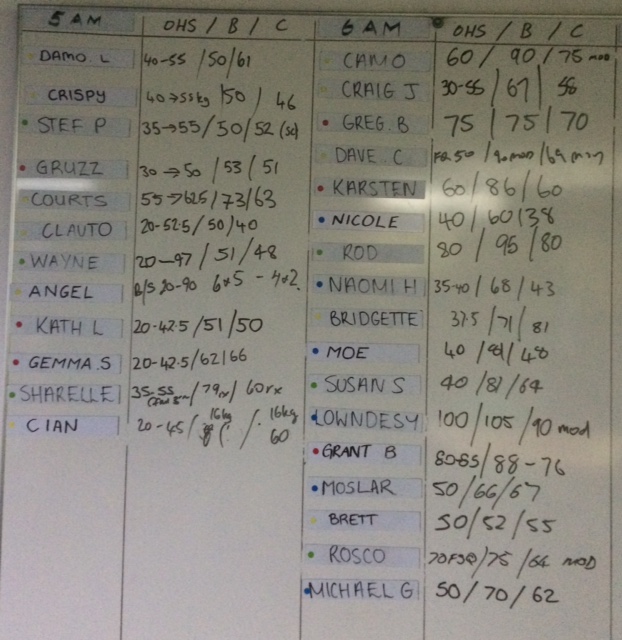 5 AM OHS / B / C
DAMO. L 40-55 / 50 / 61
CRISPY 40→55kg / 50 / 46
STEF P 35→55 / 50 / 52 (sc)
GRUZZ 30→50 / 53 / 51
COURTS 55→62.5 / 73 / 63
CLAUTO 20-52.5 / 50 / 40
WAYNE 20-47 / 51 / 48
ANGEL B/S 20-90 6*5 - 4*2
KATH L 20-42.5 / 51 / 50
GEMMA.S 20-42.5 / 62 / 66
SHARELLE 35-55 / 79 / 60rx
CIAN 20-45 / 16kg / 16kg
60
6 AM OHS / B / C
CAMO 60 / 90 / 75 mod
CRAIG J 30-55 / 67 / 58
GREG.B 75 / 75 / 70
DAVE C 50 / 90 mod / 69 mod
KARSTEN 60 / 86 / 60
NICOLE 40 / 60 / 38
ROD 80 / 95 / 80
NAOMI H 35-40 / 68 / 43
BRIDGETTE 37.5 / 71 / 81
MOE 40 / 81 / 48
SUSAN S 40 / 81 / 64
LOWNDESY 100 / 105 / 90 mod
GRANT B 80-85 / 88 - 76
MOSLAR 50 / 66 / 67
BRETT 50 / 52 / 55
ROSCO 70 FSQ / 75 / 64 MOD
MICHAEL G 50 / 70 / 62